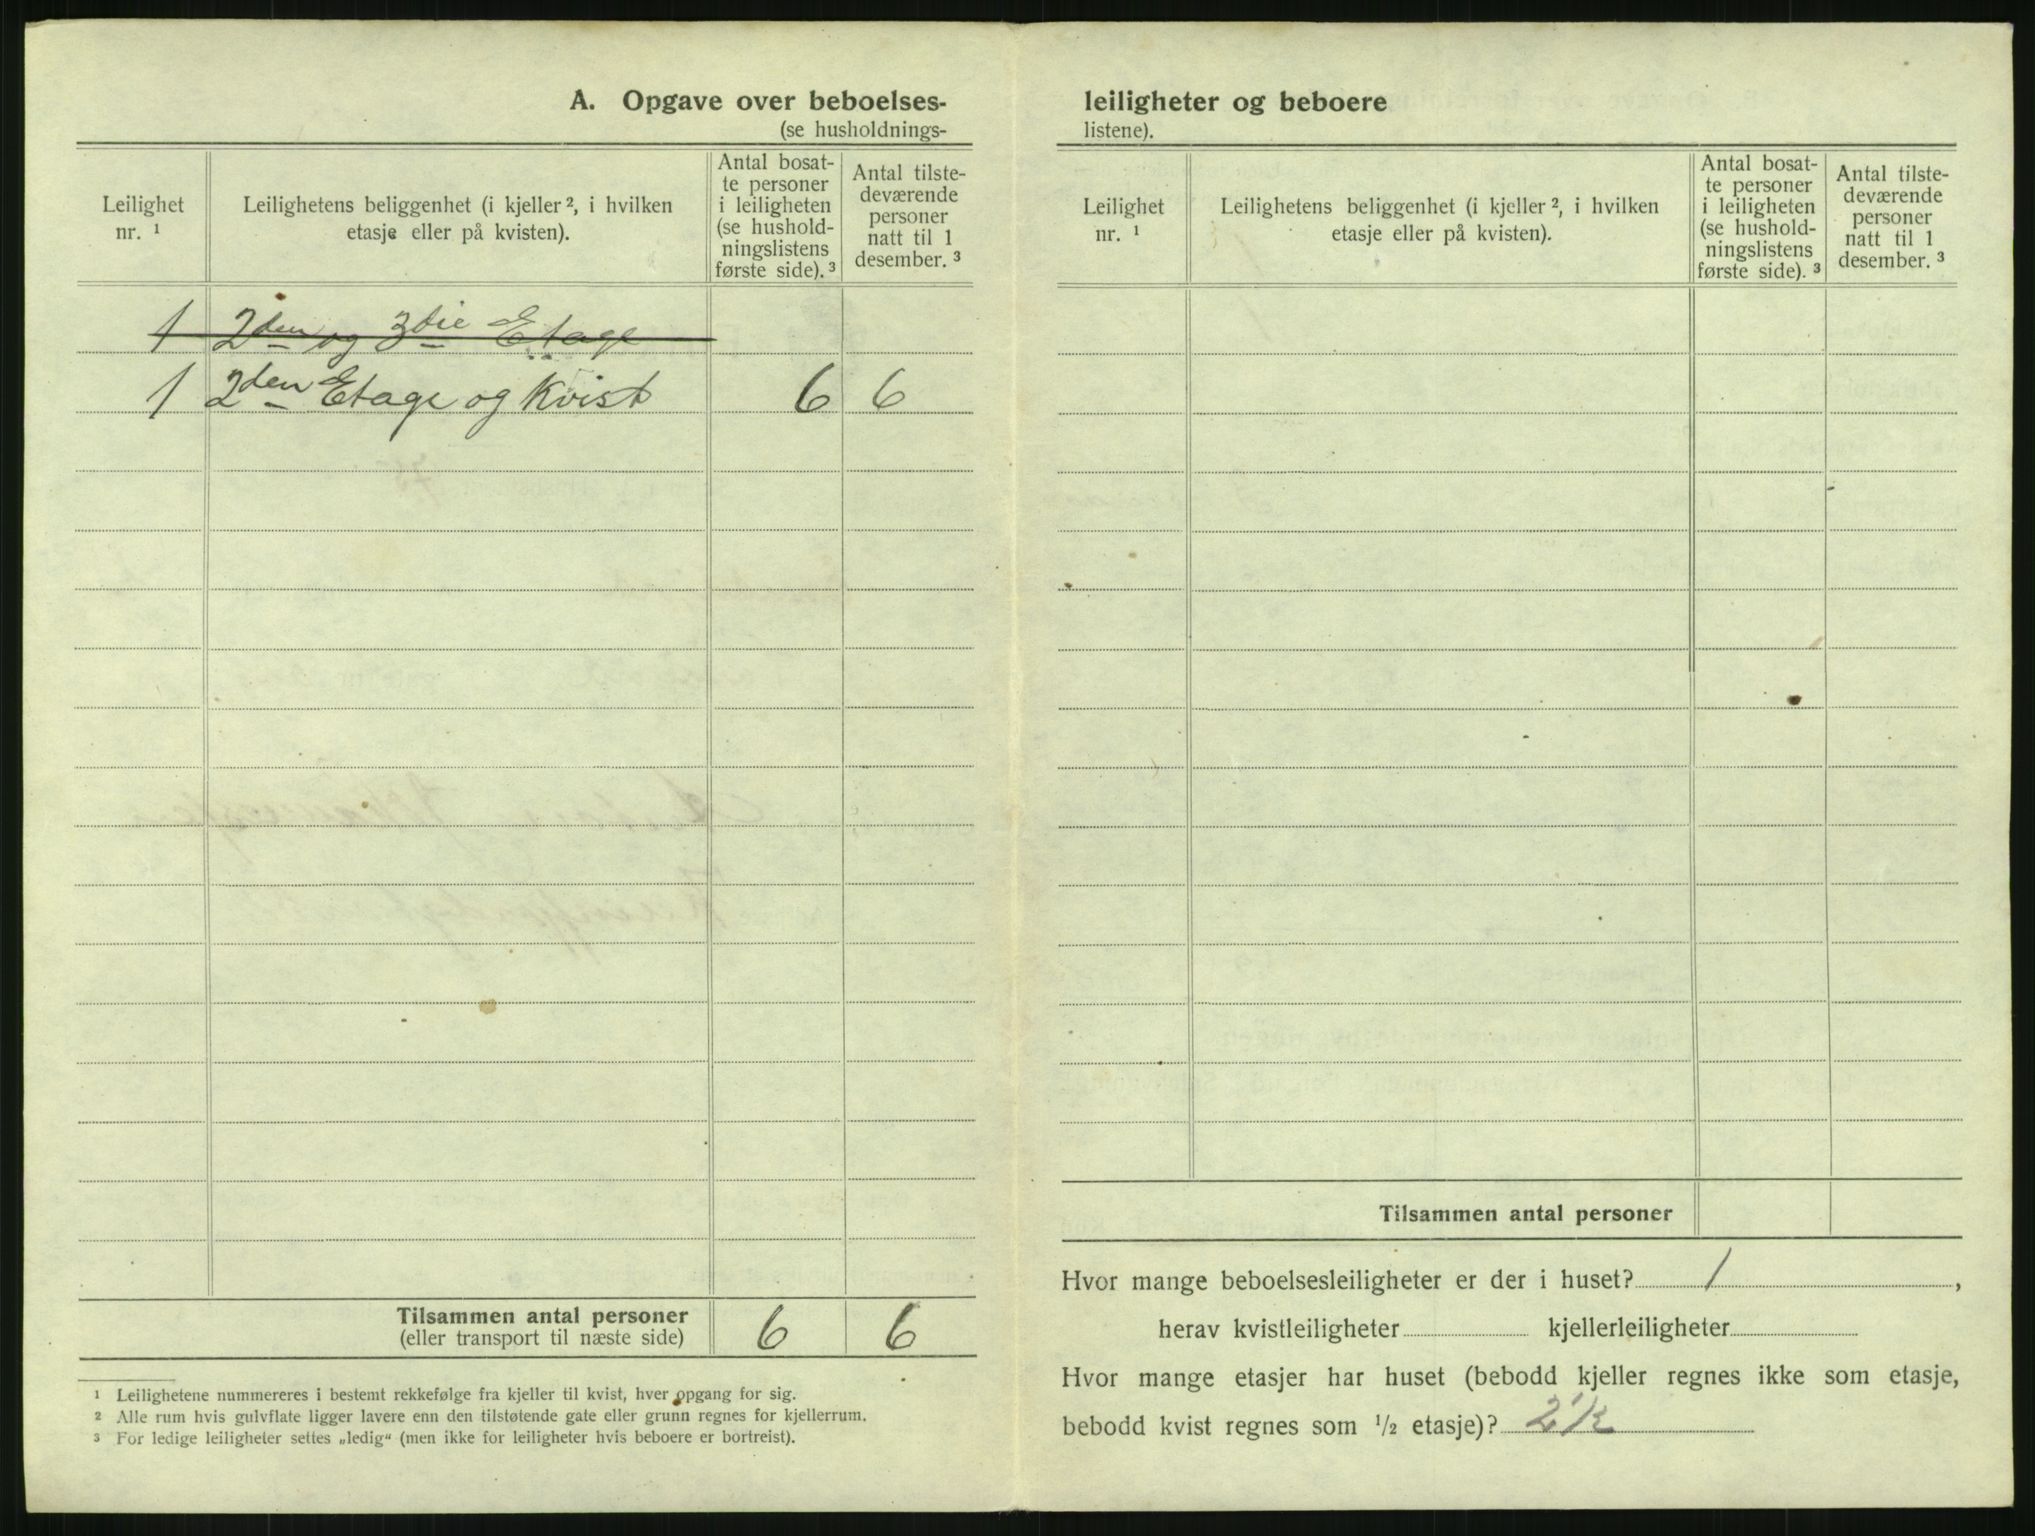 A. Opgave over beboelses-
(se husholdnings-
Leilighet nr. ¹
Leilighetens beliggenhet (i kjeller ², i hvilken etasje eller på kvisten).
Antal bosat-
te personer
i leiligheten
(se hushold-
ningslistens
første side). ³
Antal tilste-
deværende
personer
natt til 1
desember. ³
1 2den og 3die Etage
1 2den Etage og Kvist 6 6
Tilsammen antal personer 6 6
(eller transport til næste side)
¹ Leilighetene nummereres i bestemt rekkefølge fra kjeller til kvist, hver opgang for sig.
² Alle rum hvis gulvflate ligger lavere enn den tilstøtende gate eller grunn regnes for kjellerrum.
³ For ledige leiligheter settes „ledig“ (men ikke for leiligheter hvis beboere er bortreist).
leiligheter og beboere
listene).
Leilighet nr. ¹
Leilighetens beliggenhet (i kjeller ², i hvilken etasje eller på kvisten).
Antal bosat-
te personer
i leiligheten
(se hushold-
ningslistens
første side). ³
Antal tilste-
deværende
personer
natt til 1
desember. ³
Tilsammen antal personer
Hvor mange beboelsesleiligheter er der i huset? 1 ,
herav kvistleiligheter kjellerleiligheter
Hvor mange etasjer har huset (bebodd kjeller regnes ikke som etasje,
bebodd kvist regnes som ½ etasje)? 2½